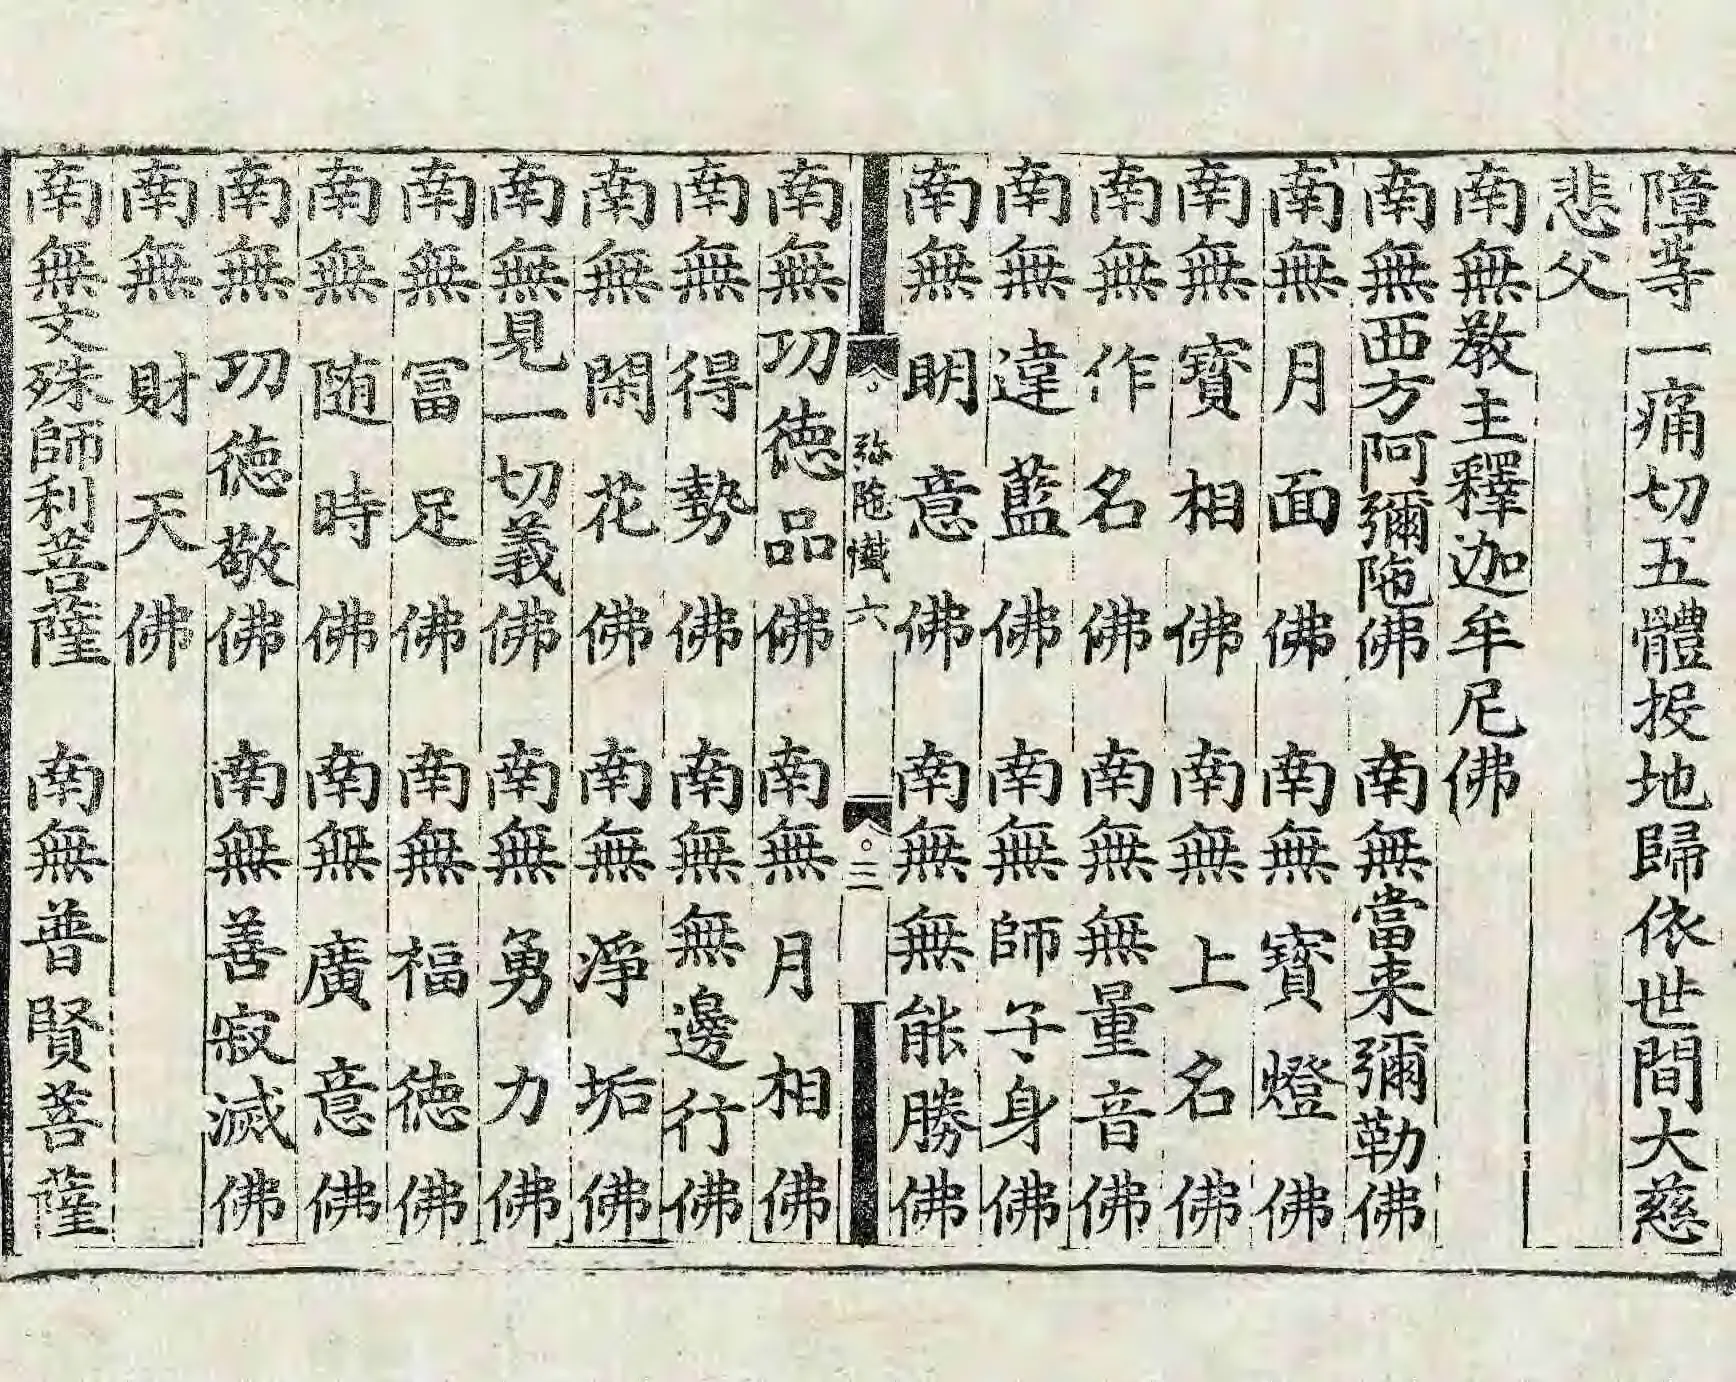 障等一痛切五體投地歸依世間大慈
悲父
南無敎主釋迦牟尼佛
南無西方阿彌陁佛 南無當来彌勒佛
南無月面佛 南無寶燈佛
南無寶相佛 南無上名佛
南無作名佛 南無無量音佛
南無違藍佛 南無師子身佛
南無明意佛 南無無能勝佛
弥陁懴六 三
南無功徳品佛 南無月相佛
南無得勢佛 南無無邊行佛
南無閑花佛 南無淨垢佛
南無見一切義佛 南無勇力佛
南無冨足佛 南無福徳佛
南無随時佛 南無廣意佛
南無功徳敬佛 南無善寂滅佛
南無財天佛
南無文殊師利菩薩 南無普賢菩薩